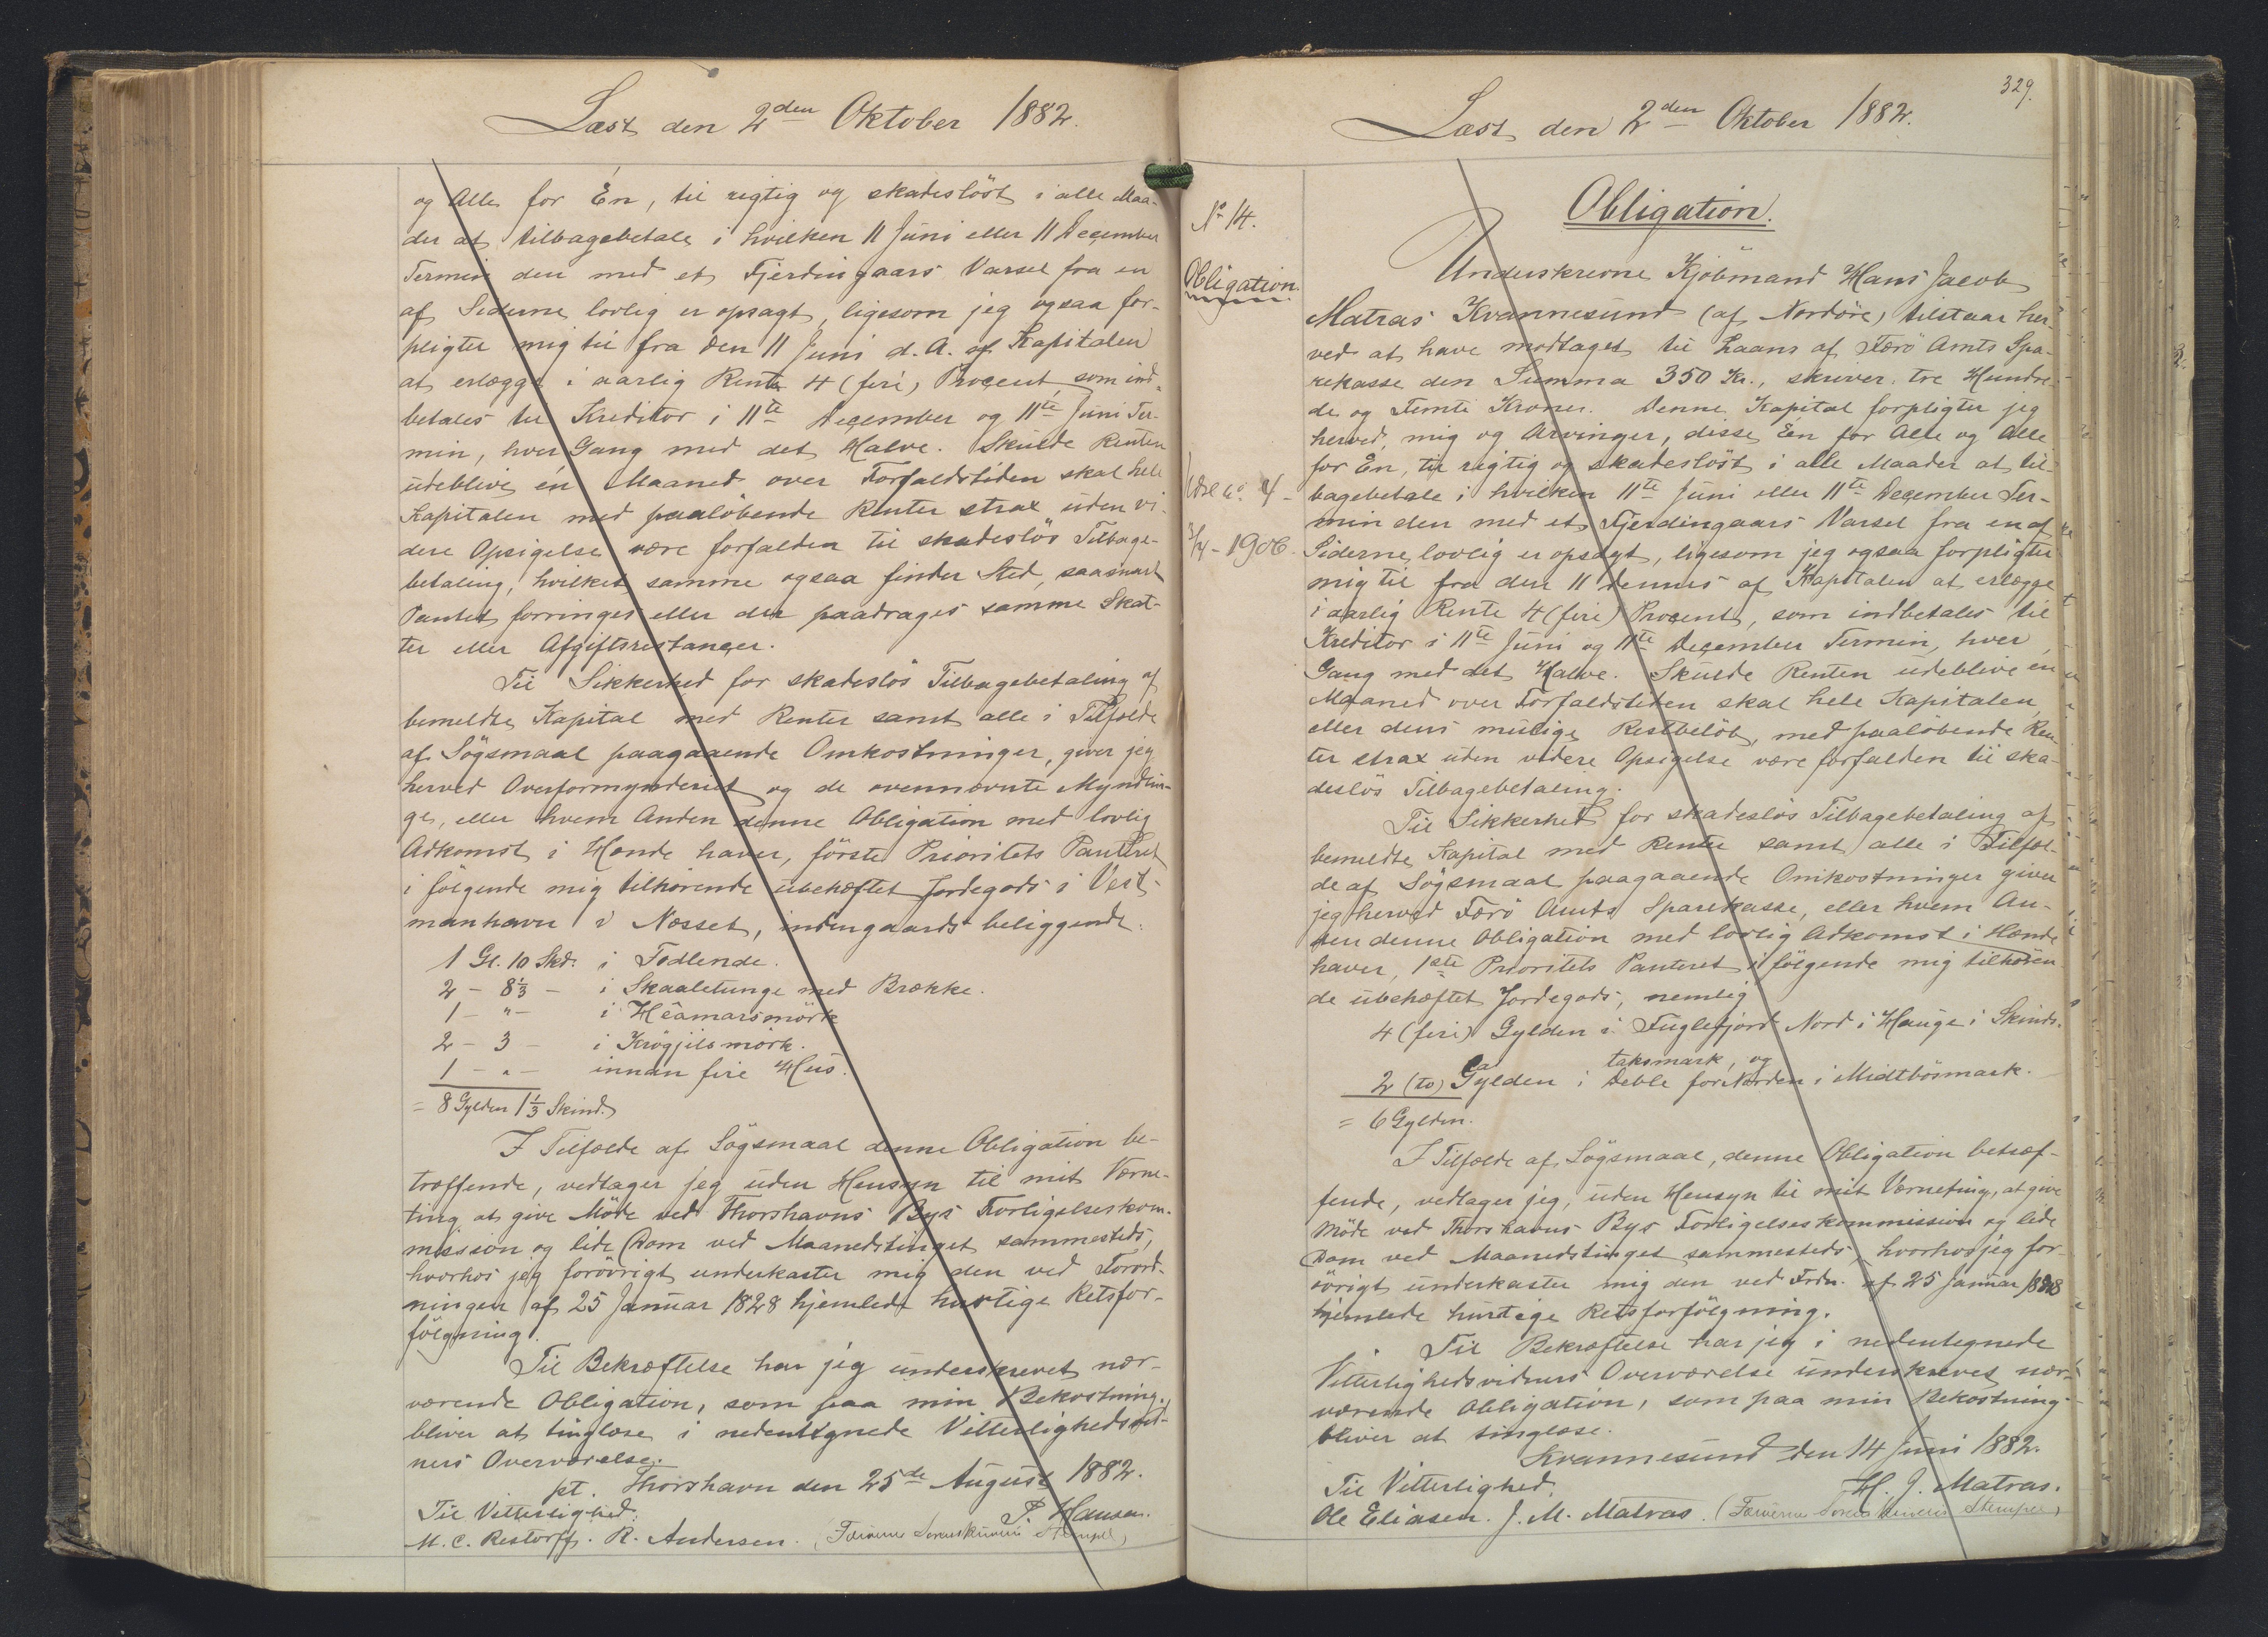 Læst den 2den Oktober 1882.
og Alle for Én, til rigtig og skadesløst i alle Maa-
der at tilbagebetale i hvilken 11 Juni eller 11 December
Termin den med et Fjerdingaars Varsel fra en
af Siderne lovlig er opsagt, ligesom jeg ogsaa for-
pligter mig til fra den 11 Juni d. A. af Kapitalen
at erlægge i aarlig Rente 4 (fire) Procent, som ind-
betales til Kreditor i 11te December og 11te Juni Ter-
min, hver Gang med det Halve. Skulde Renten
udeblive én Maaned over Forfaldstiden skal hele
Kapitalen med paaløbende Renter strax uden vi-
dere Opsigelse være forfalden til skadesløs Tilbage-
betaling, hvilket samme ogsaa finder Sted, saasnart
Pantet forringes eller der paadrages samme Skat-
ter eller Afgiftsrestancer.
Til Sikkerhed for skadesløs Tilbagebetaling af
bemeldte Kapital med Renter samt alle i Tilfælde
af Søgsmaal paagaaende Omkostninger, giver jeg
herved Overformynderiet og de ovennævnte Myndlin-
ge, eller hvem Anden denne Obligation med lovlig
Adkomst i Hænde haver, første Prioritets Panteret
i følgende mig tilhørende ubehæftet Jordegods i Vest-
manhavn v Nesset, indengaards beliggende.
1 Gl. 10 Skd. i Fødlende.
2 - 8⅓ - i Skaaletunge med Brække.
1 - " - i Hêamarsmörk
2 - 3 - i Krógjilsmörk.
1 - " - innan fire Hus.
= 8 Gylden 1⅓ Skind.
I Tilfælde af Søgsmaal denne Obligation be-
træffende, vedtager jeg uden Hensyn til mit Værne-
ting at give Møde ved Thorshavns Bys Forligelseskom-
misson og lide Dom ved Maanedstinget sammesteds,
hvorhos jeg forøvrigt underkaster mig den ved Forord-
ningen af 25 Januar 1828 hjemlede hurtige Retsfor-
følgning.
Til Bekræftelse har jeg underskrevet nær-
værende Obligation, som paa min Bekostning
bliver at tinglæse i nedentegnede Vitterlighedsvid-
ners Overværelse.
pt. Thorshavn den 25de August 1882.
Til Vitterlighed: P. Hansen.
M. C. Restorff. R. Andersen. (Færøerne Sorenskriveri Stempel)
329.
Læst den 2den Oktober 1882.
No 14.
Obligation.
3/4 - 1906.
Obligation.
Underskrevne Kjøbmand Hans Jacob
Matras Kvannesund (af Nordøre) tilstaar her-
ved at have modtaget til Laans af Færø Amts Spa-
rekasse den Summa 350 Kr., skriver tre Hundre-
de og Femti Kroner. Denne Kapital forpligter jeg
herved mig og Arvinger, disse Én for Alle og Alle
for Én, til rigtig og skadesløst i alle Maader at til-
bagebetale i hvilken 11te Juni eller 11te December Ter-
min den med et Fjerdingaars Varsel fra en af
Siderne lovlig er opsagt, ligesom jeg ogsaa forpligter
mig til fra den 11 dennes af Kapitalen at erlægge
i aarlig Rente 4 (fire) Procent, som indbetales til
Kreditor i 11te Juni og 11te December Termin, hver
Gang med det Halve. Skulde Renten udeblive en
Maaned over Forfaldstiden skal hele Kapitalen
eller dens mulige Restbeløb, med paaløbende Ren-
ter strax uden videre Opsigelse være forfalden til ska-
desløs Tilbagebetaling.
Til Sikkerhed for skadesløs Tilbagebetaling af
bemeldte Kapital med Renter samt alle i Tilfæl-
de af Søgsmaal paagaaende Omkostninger giver
jeg herved Færø Amts Sparekasse, eller hvem An-
den denne Obligation med lovlig Adkomst i Hænde
haver, 1ste Prioritets Panteret i følgende mig tilhøren-
de ubehæftet Jordegods, nemlig
4 (fire) Gylden i Fuglefjord Nord i Hauge i Skinds-
taksmark, og
2 (to) Gylden i Deble for Norden i Midtbösmark.
= 6 Gylden.
I Tilfælde af Søgsmaal, denne Obligation betræf-
fende, vedtager jeg, uden Hensyn til mit Værneting, at give
Møde ved Thorshavns Bys Forligelseskommission og lide
Dom ved Maanedstinget sammesteds, hvorhos jeg for-
øvrigt underkaster mig den ved Frdn. af 25 Januar 1828
hjemlede hurtige Retsforfølgning.
Til Bekræftelse har jeg i nedentegnede
Vitterlighedsvidners Overværelse underskrevet nær-
værende Obligation, som paa min Bekostning
bliver at tinglæse.
Kvannesund den 14 Juni 1882.
Til Vitterlighed. H. J. Matras.
Ole Eliasen. J. M. Matras. (Færøerne Sorenskriveri Stempel)